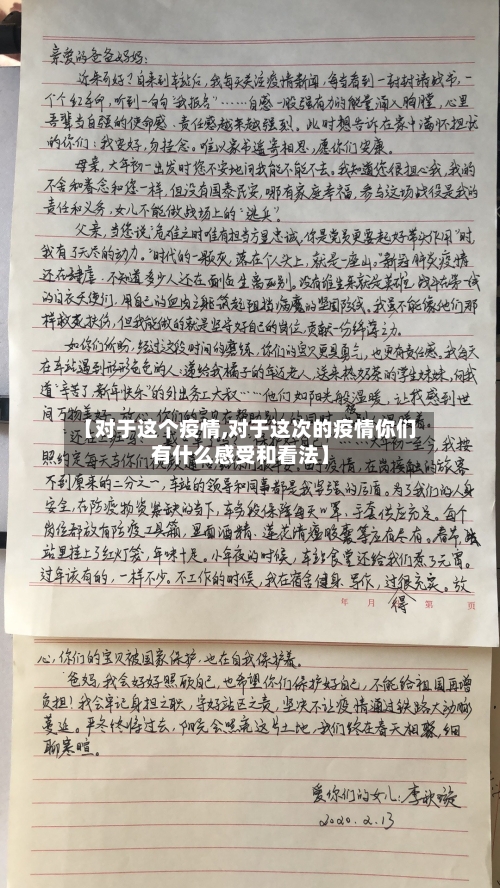 亲爱的爸爸妈妈:
近来可好?自来到车站后,我每天关注疫情新闻,每当看到一封封请战书,一
个个红手印,听到一句句“我报名”……自感一股强有力的能量涌入胸膛,心里
吾辈当自强的使命感、责任感越来越强烈。此时想告诉在家中满怀担忧
的你们:我安好,勿挂念。唯以家书遥寄相思,愿你们安康。
母亲,大年初一出发时您不安地问我能不能不去。我知道您很担心我,我的
不舍和眷恋和您一样,但没有国泰民安,哪有家庭幸福,参与这场战役是我的
责任和义务,女儿不能做战场上的“逃兵”。
父亲,当您说“危难之时唯有担当方显忠诚,你是党员更要起好带头作用”时,
我有了无尽的动力。“时代的一颗灰,落在个人头上,就是一座山。”新冠肺炎疫情
还在肆虐,不知道多少人还在面临生离死别。没有谁生来就是英雄,战斗在第一线
的白衣天使们,用自己的血肉之躯筑起阻挡病魔的坚固防线。我虽不能像他们那
样救死扶伤,但我能做的就是坚守好自己的岗位,贡献一份绵薄之力。
如你们所盼,经过这段时间的磨练,你们的宝贝更具勇气,也更有责任感。我每天
在车站遇到形形色色的人:递给我橘子的年迈老人、送来热奶茶的学生妹妹、向我
道“辛苦了,新年快乐”的外出务工大叔……他们如阳光般温暖,让我感到世
间万物美好。
【对于这个疫情,对于这次的疫情你们
有什么感受和看法】
大年初一至今,我按
照约定每天与你们
不到原来的二分之一,车站的领导和同事都是我坚强的后盾。为了我们的人身
安全,在防疫物资紧缺的当下,车务段保障每天口罩、手套供应充足。每个
岗位都放有防疫工具箱,里面酒精、莲花清瘟胶囊等应有尽有。春节,
站里挂上了红灯笼,年味十足。小年夜的时候,车站食堂还给我们煮了元宵。
过年该有的,一样不少。不工作的时候,我在宿舍健身、写作,过得很充实。放
年 月 日 第 页
心,你们的宝贝被国家保护,也在自我保护着。
爸妈,我会好好照顾自己,也希望你们保护好自己,不能给祖国再增
负担!我会牢记身担之职,守好站区之责,坚决不让疫情通过铁路大动脉
蔓延。严冬终将过去,阳光会照亮这片土地,我们终在春天相聚,细
聊寒暄。
爱你们的女儿:李欣璇
2020.2.13